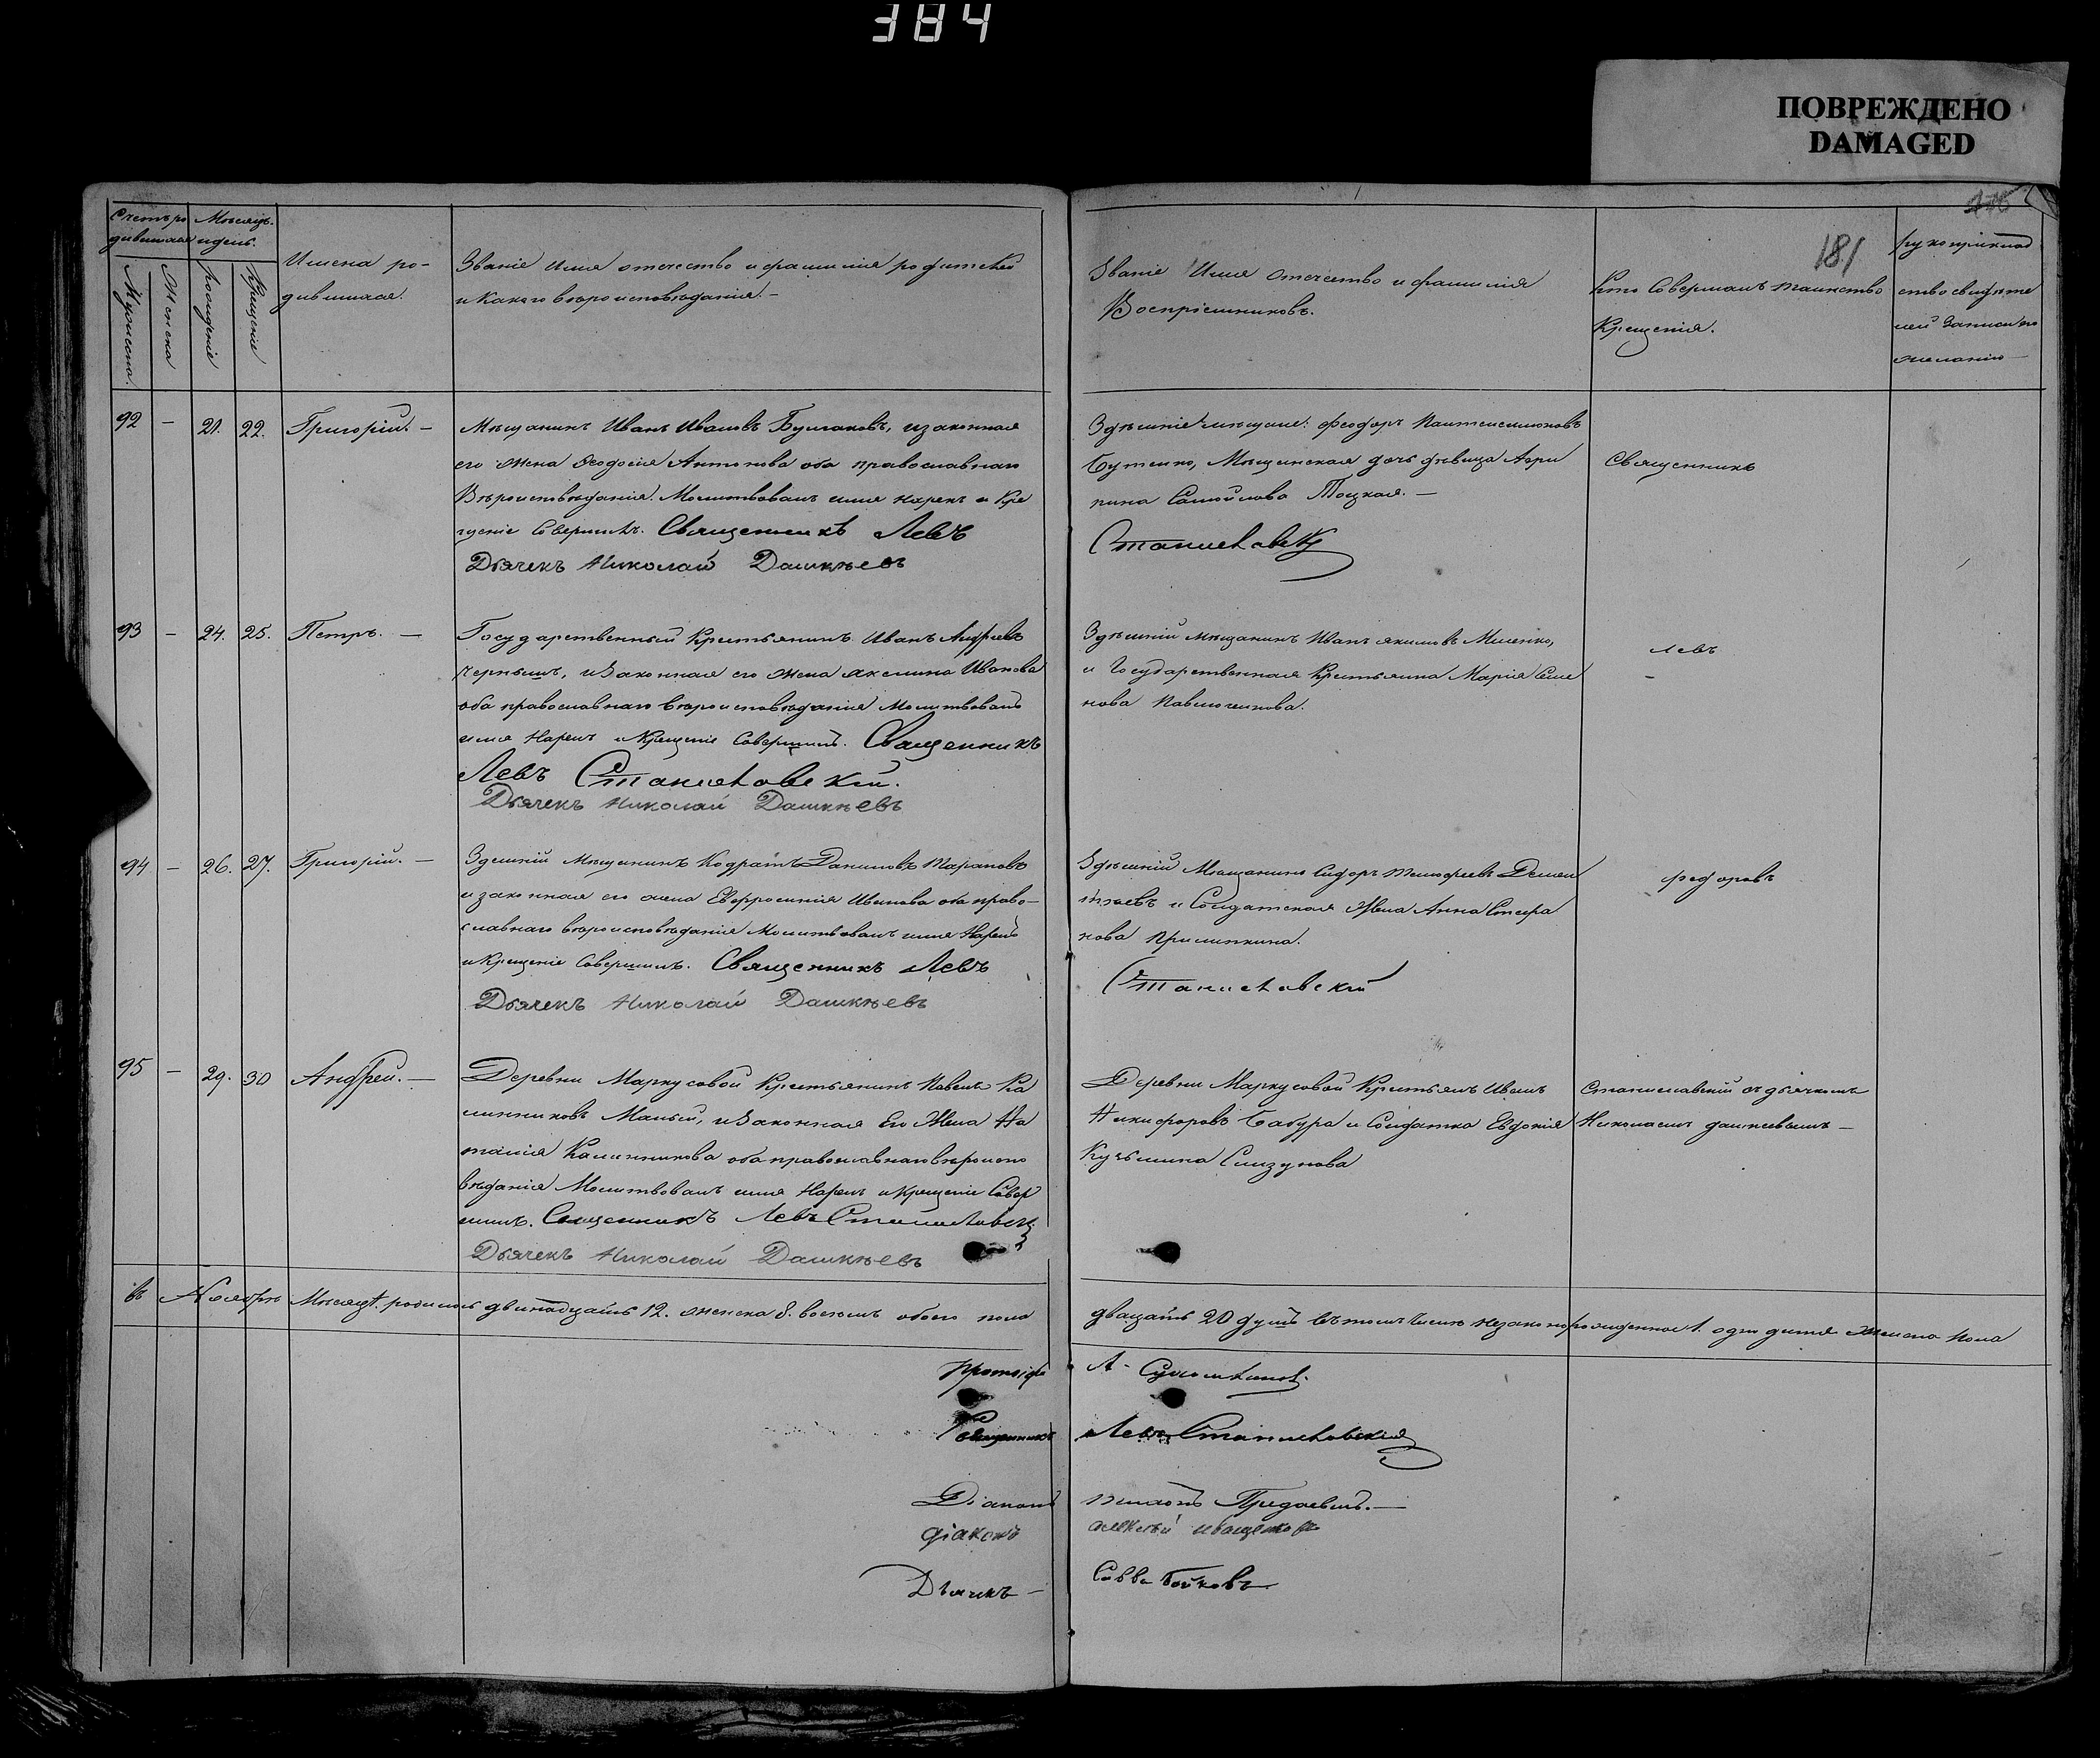 384
ПОВРЕЖДЕНО
DAMAGED
181
Счетъ ро Мѣсяцъ
дившихся и день.
Мужеска.
Женска
Рожденіе
Крещеніе
Имена ро-
дившихся.
Званіе Имя отечество и фамилія родителей
и Какого вѣроисповѣданія.-
Званіе Имя Отечество и фамилія
Воспріемниковъ.
Кто Совершалъ таинство
Крещенія.
рукоприклад
ство свидѣте
лей записи по
желанію
92 - 21. 22. Григорій. -
Мѣщанинъ Иванъ Ивановъ Булгаковъ, и законная
его жена Ѳеодосія Антонова оба православнаго
Вѣроисповѣданія. Молитвовалъ имя нарекъ и Кре
щеніе Совершилъ. Священникъ Левъ
Дьячекъ Николай Дашкѣевъ
Здѣшніе мѣщане: Феодоръ Пантелеимоновъ
Бутенко, Мѣщанская дочь дѣвица Агри
пина Самойлова Тоцкая. -
Станиславскій
Священникъ
93 - 24. 25. Петръ. -
Государственный Крестьянинъ Иванъ Андреевъ
Чернышъ, и Законная его жена Акелина Иванова
оба православнаго вѣроисповѣданія Молитвовалъ
имя Нарекъ и Крещеніе Совершилъ. Священникъ
Левъ Станиславскій.
Дьячекъ Николай Дашкѣевъ
Здѣшній мѣщанинъ Иванъ Якимовъ Миленко,
и Государственная Крестьянка Марія Семе
нова Павлюченкова.
Левъ
94 - 26. 27. Григорій. -
Здешній Мѣщанинъ Кодратъ Даниловъ Тарановъ
и законная его жена Евфросинія Иванова оба право-
славнаго вѣроисповѣданія Молитвовалъ имя Нарекъ
и Крещеніе Совершилъ. Священникъ Левъ
Дьячекъ Николай Дашкѣевъ
Здѣшній Мѣщанинъ Сидоръ Тимофеевъ Демен
тьевъ и Солдатская Жена Анна Стефа
нова
Станиславскій
Федоровъ
95 - 29. 30 Андрей. -
Деревни Маркусовой Крестьянинъ Павелъ Ка
линниковъ Малый, и Законная Его Жена На
талія Калинникова оба православнаго вѣроиспо
вѣданія Молитвовалъ имя Нарекъ и Крещеніе Совер
шилъ. Священникъ Левъ Станиславскій
Дьячекъ Николай Дашкѣевъ
Деревни Маркусовой Крестьянъ Иванъ
Никифоровъ Бабура и Солдатка Евдокія
Кузьмина Слизунова
Станиславскій съ дьячкомъ
Николаемъ Дашкеевымъ -
въ Ноябрѣ Мѣсяцѣ родилось двѣнадцать 12. женска 8. восемь обоего пола
двацать 20 душъ въ томъ числѣ незаконорожденное 1. одно дитя Женска пола
Протоіерей А. Сухомлиновъ.
Священникъ Левъ Станиславскій
Діаконъ
діаконъ алексѣй иващенковъ
Дьячекъ - Савва Бойковъ